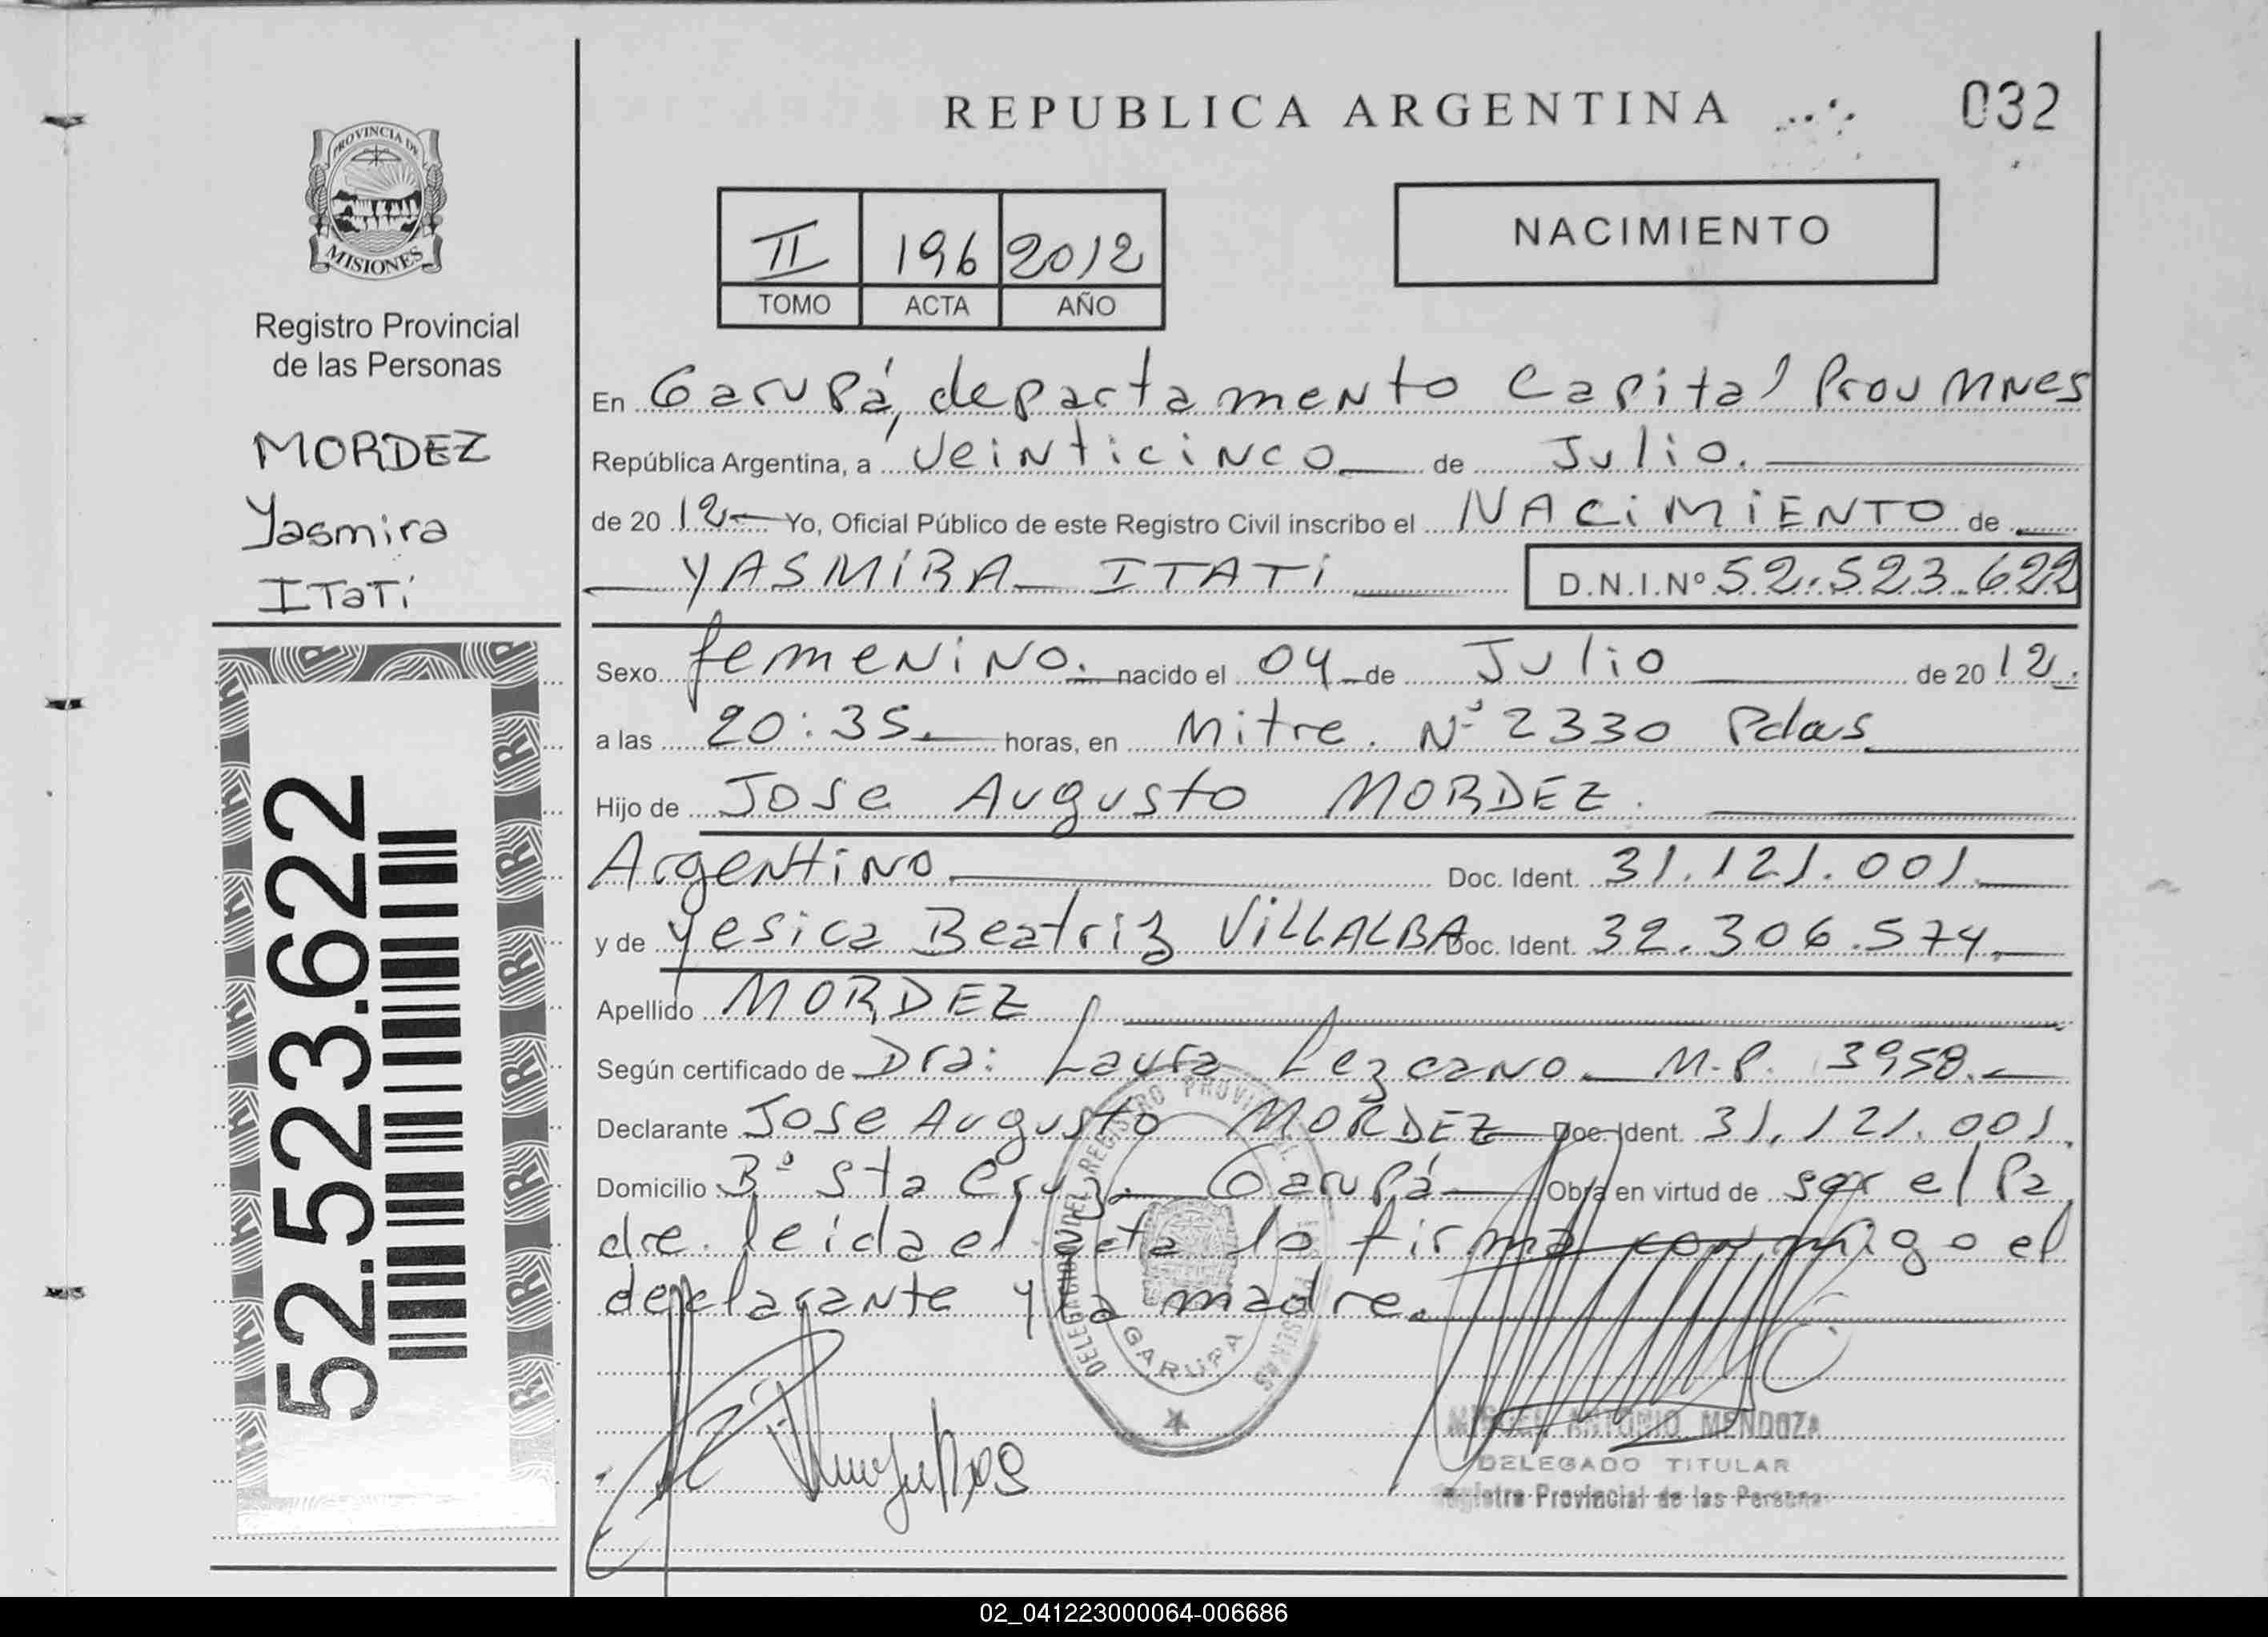 REPUBLICA ARGENTINA
032
PROVINCIA DE
MISIONES
Registro Provincial
de las Personas
MORDEZ
Yasmira
ITaTi
52.523.622
II 196 2012
TOMO ACTA AÑO
NACIMIENTO
En Garupá, departamento Capital Prov Mnes
República Argentina, a veinticinco de Julio.
de 20 12 Yo, Oficial Público de este Registro Civil inscribo el NACiMiENTO de
YASMiRA ITATi D.N.I.Nº 52.523.622
Sexo femenino. nacido el 04 de Julio de 20 12.
a las 20:35. horas, en Mitre. Nº 2330 Pdas
Hijo de Jose Augusto MORDEZ.
Argentino Doc. Ident. 31.121.001.
y de Yesica Beatriz ViLLALBA Doc. Ident. 32.306.574.
Apellido MORDEZ
Según certificado de Dra: Laura Lezcano. M.P. 3958.-
Declarante Jose Augusto MORDEZ Doc. Ident. 31.121.001.
Domicilio Bº Sta Cruz. Garupá Obra en virtud de ser el Pa
dre. leida el acta lo firma conmigo el
declarante y la madre.
DELEGACION DEL REGISTRO PROVINCIAL DE LAS PERSONAS
GARUPA
MIGUEL ANTONIO MENDOZA
DELEGADO TITULAR
Registro Provincial de las Personas
02_041223000064-006686